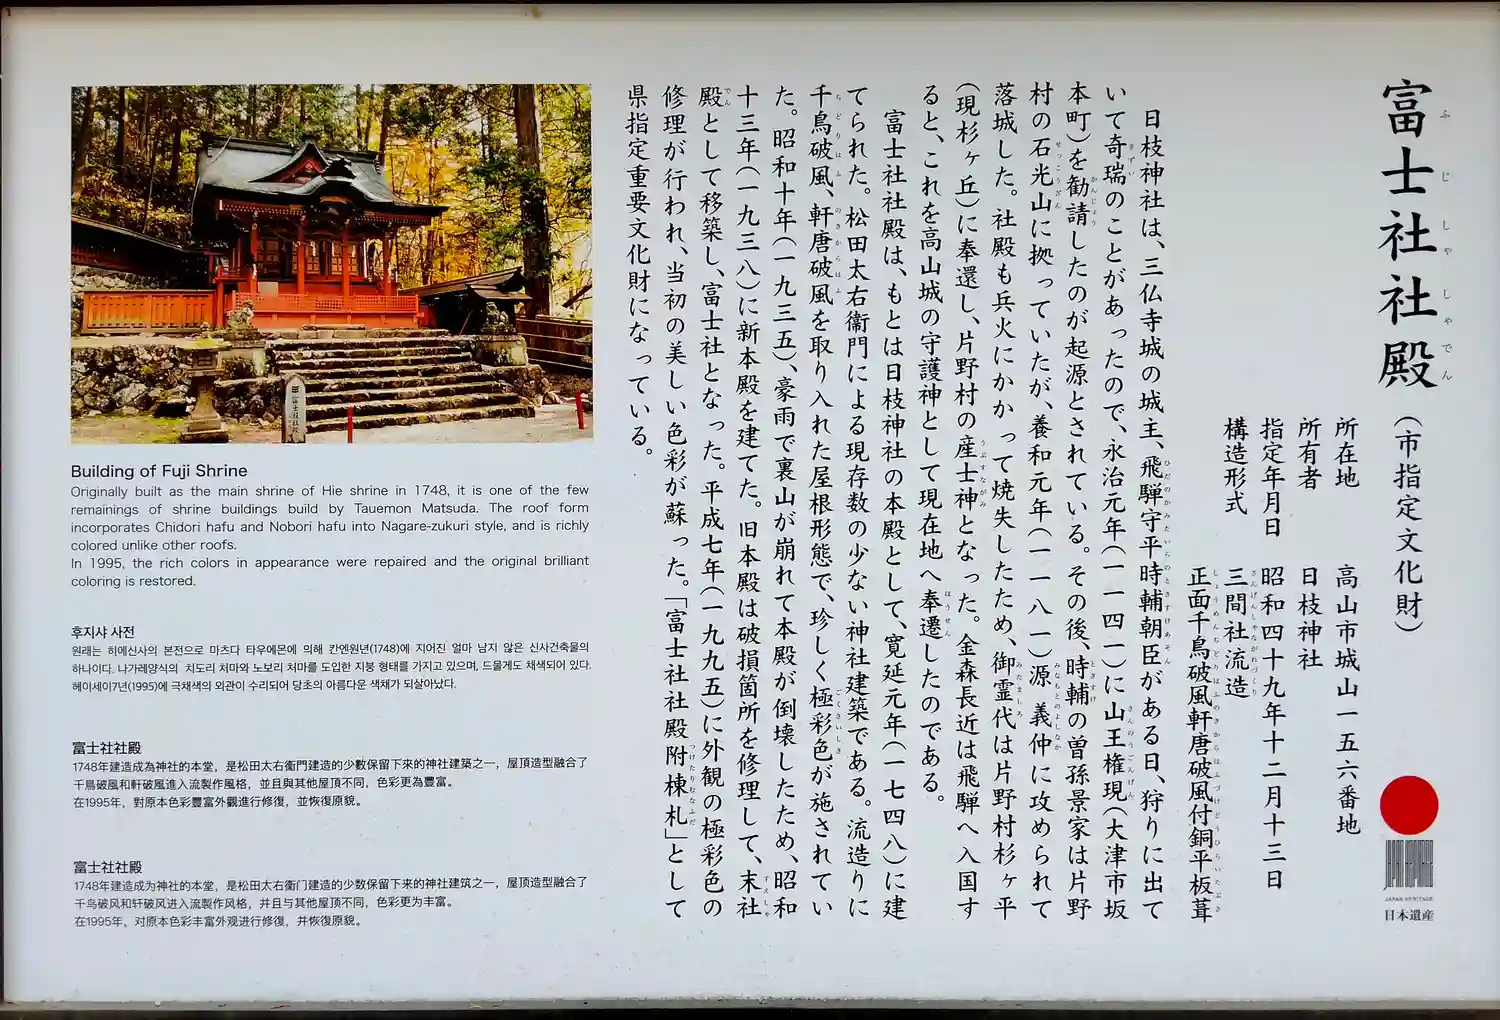 富士社社殿(市指定文化財)
所在地 高山市城山一五六番地
所有者 日枝神社
指定年月日 昭和四十九年十二月十三日
構造形式 三間社流造
正面千鳥破風軒唐破風付銅平板葺
日枝神社は、三仏寺城の城主、飛騨守平時輔朝臣がある日、狩りに出て
いて奇瑞のことがあったので、永治元年(一一四一)に山王権現(大津市坂
本町)を勧請したのが起源とされている。その後、時輔の曽孫景家は片野
村の石光山に拠っていたが、養和元年(一一八一)源義仲に攻められて
落城した。社殿も兵火にかかって焼失したため、御霊代は片野村杉ヶ平
(現杉ヶ丘)に奉還し、片野村の産士神となった。金森長近は飛騨へ入国す
ると、これを高山城の守護神として現在地へ奉遷したのである。
富士社社殿は、もとは日枝神社の本殿として、寛延元年(一七四八)に建
てられた。松田太右衛門による現存数の少ない神社建築である。流造りに
千鳥破風、軒唐破風を取り入れた屋根形態で、珍しく極彩色が施されてい
た。昭和十年(一九三五)、豪雨で裏山が崩れて本殿が倒壊したため、昭和
十三年(一九三八)に新本殿を建てた。旧本殿は破損箇所を修理して、末社
殿として移築し、富士社となった。平成七年(一九九五)に外観の極彩色の
修理が行われ、当初の美しい色彩が蘇った。「富士社社殿附棟札」として
県指定重要文化財になっている。
Building of Fuji Shrine
Originally built as the main shrine of Hie shrine in 1748, it is one of the few
remainings of shrine buildings build by Tauemon Matsuda. The roof form
incorporates Chidori hafu and Nobori hafu into Nagare-zukuri style, and is richly
colored unlike other roofs.
In 1995, the rich colors in appearance were repaired and the original brilliant
coloring is restored.
후지샤 사전
원래는 히에신사의 본전으로 마츠다 타우에몬에 의해 칸엔원년(1748)에 지어진 얼마 남지 않은 신사건축물의
하나이다. 나가레양식의 치도리 처마와 노보리 처마를 도입한 지붕 형태를 가지고 있으며, 드물게도 채색되어 있다.
헤이세이7년(1995)에 극채색의 외관이 수리되어 당초의 아름다운 색채가 되살아났다.
富士社社殿
1748年建造成為神社的本堂，是松田太右衛門建造的少數保留下來的神社建築之一，屋頂造型融合了
千鳥破風和軒破風進入流製作風格，並且與其他屋頂不同，色彩更為豐富。
在1995年，對原本色彩豐富外觀進行修復，並恢復原貌。
富士社社殿
1748年建造成为神社的本堂，是松田太右衞门建造的少数保留下来的神社建筑之一，屋顶造型融合了
千鸟破风和轩破风进入流製作风格，并且与其他屋顶不同，色彩更为丰富。
在1995年，对原本色彩丰富外观进行修復，并恢復原貌。
JAPAN HERITAGE
日本遺産